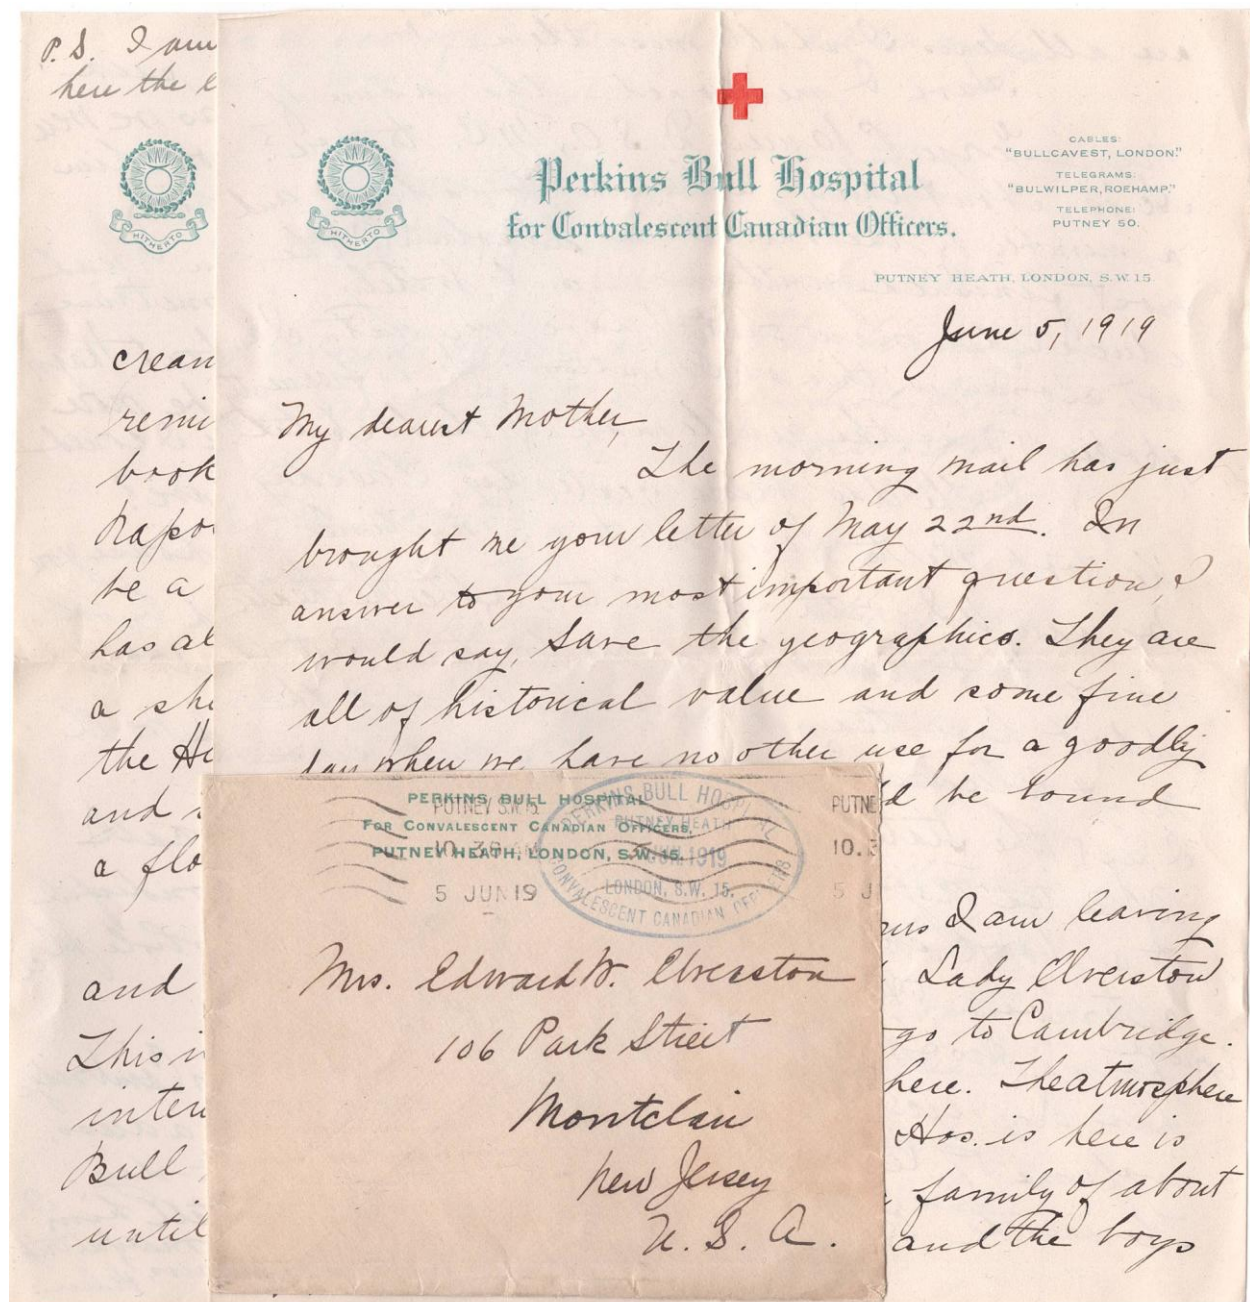 P.S. I am
here the
HITHERTO
cream
remi
book
Rapo
be a
has al
a sh
the He
and
a flo
and
This i
inter
Bull
until
HITHERTO
Perkins Bull Hospital
for Convalescent Canadian Officers.
CABLES:
"BULLCAVEST, LONDON."
TELEGRAMS:
"BULWILPER, ROEHAMP."
TELEPHONE:
PUTNEY 50.
PUTNEY HEATH, LONDON, S.W.15.
June 5, 1919
My dearest Mother,
The morning mail has just
brought me your letter of May 22nd. In
answer to your most important question, I
would say, Save the geographics. They are
all of historical value and some fine
day when we have no other use for a goodly
d be bound
I am leaving
Lady Elverston
go to Cambridge.
here. The atmosphere
Hos. is here is
family of about
and the boys
PERKINS BULL HOSPITAL
FOR CONVALESCENT CANADIAN OFFICERS,
PUTNEY HEATH, LONDON, S.W. 15.
PUTNEY S.W.15
10.30 AM
5 JUN 19
PERKINS BULL HOSPITAL
PUTNEY HEATH
5 JUN 1919
LONDON, S.W. 15.
CONVALESCENT CANADIAN OFFICERS
PUTNE
10.3
5 J
Mrs. Edward W. Elverston
106 Park Street
Montclair
New Jersey
U. S. A.